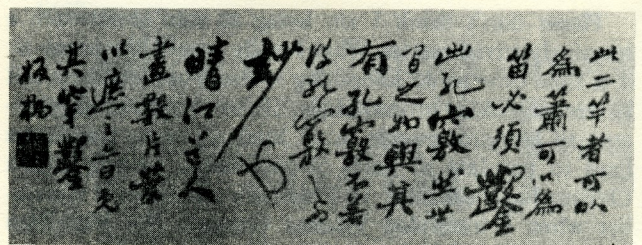 此二竿者可以
為簫可以為
笛必須鑿
出孔竅然世
間之物與其
有孔竅不若
沒孔竅之為
妙也
晴江道人
畫數片葉
以遮之亦曰免
其穿鑿
板橋